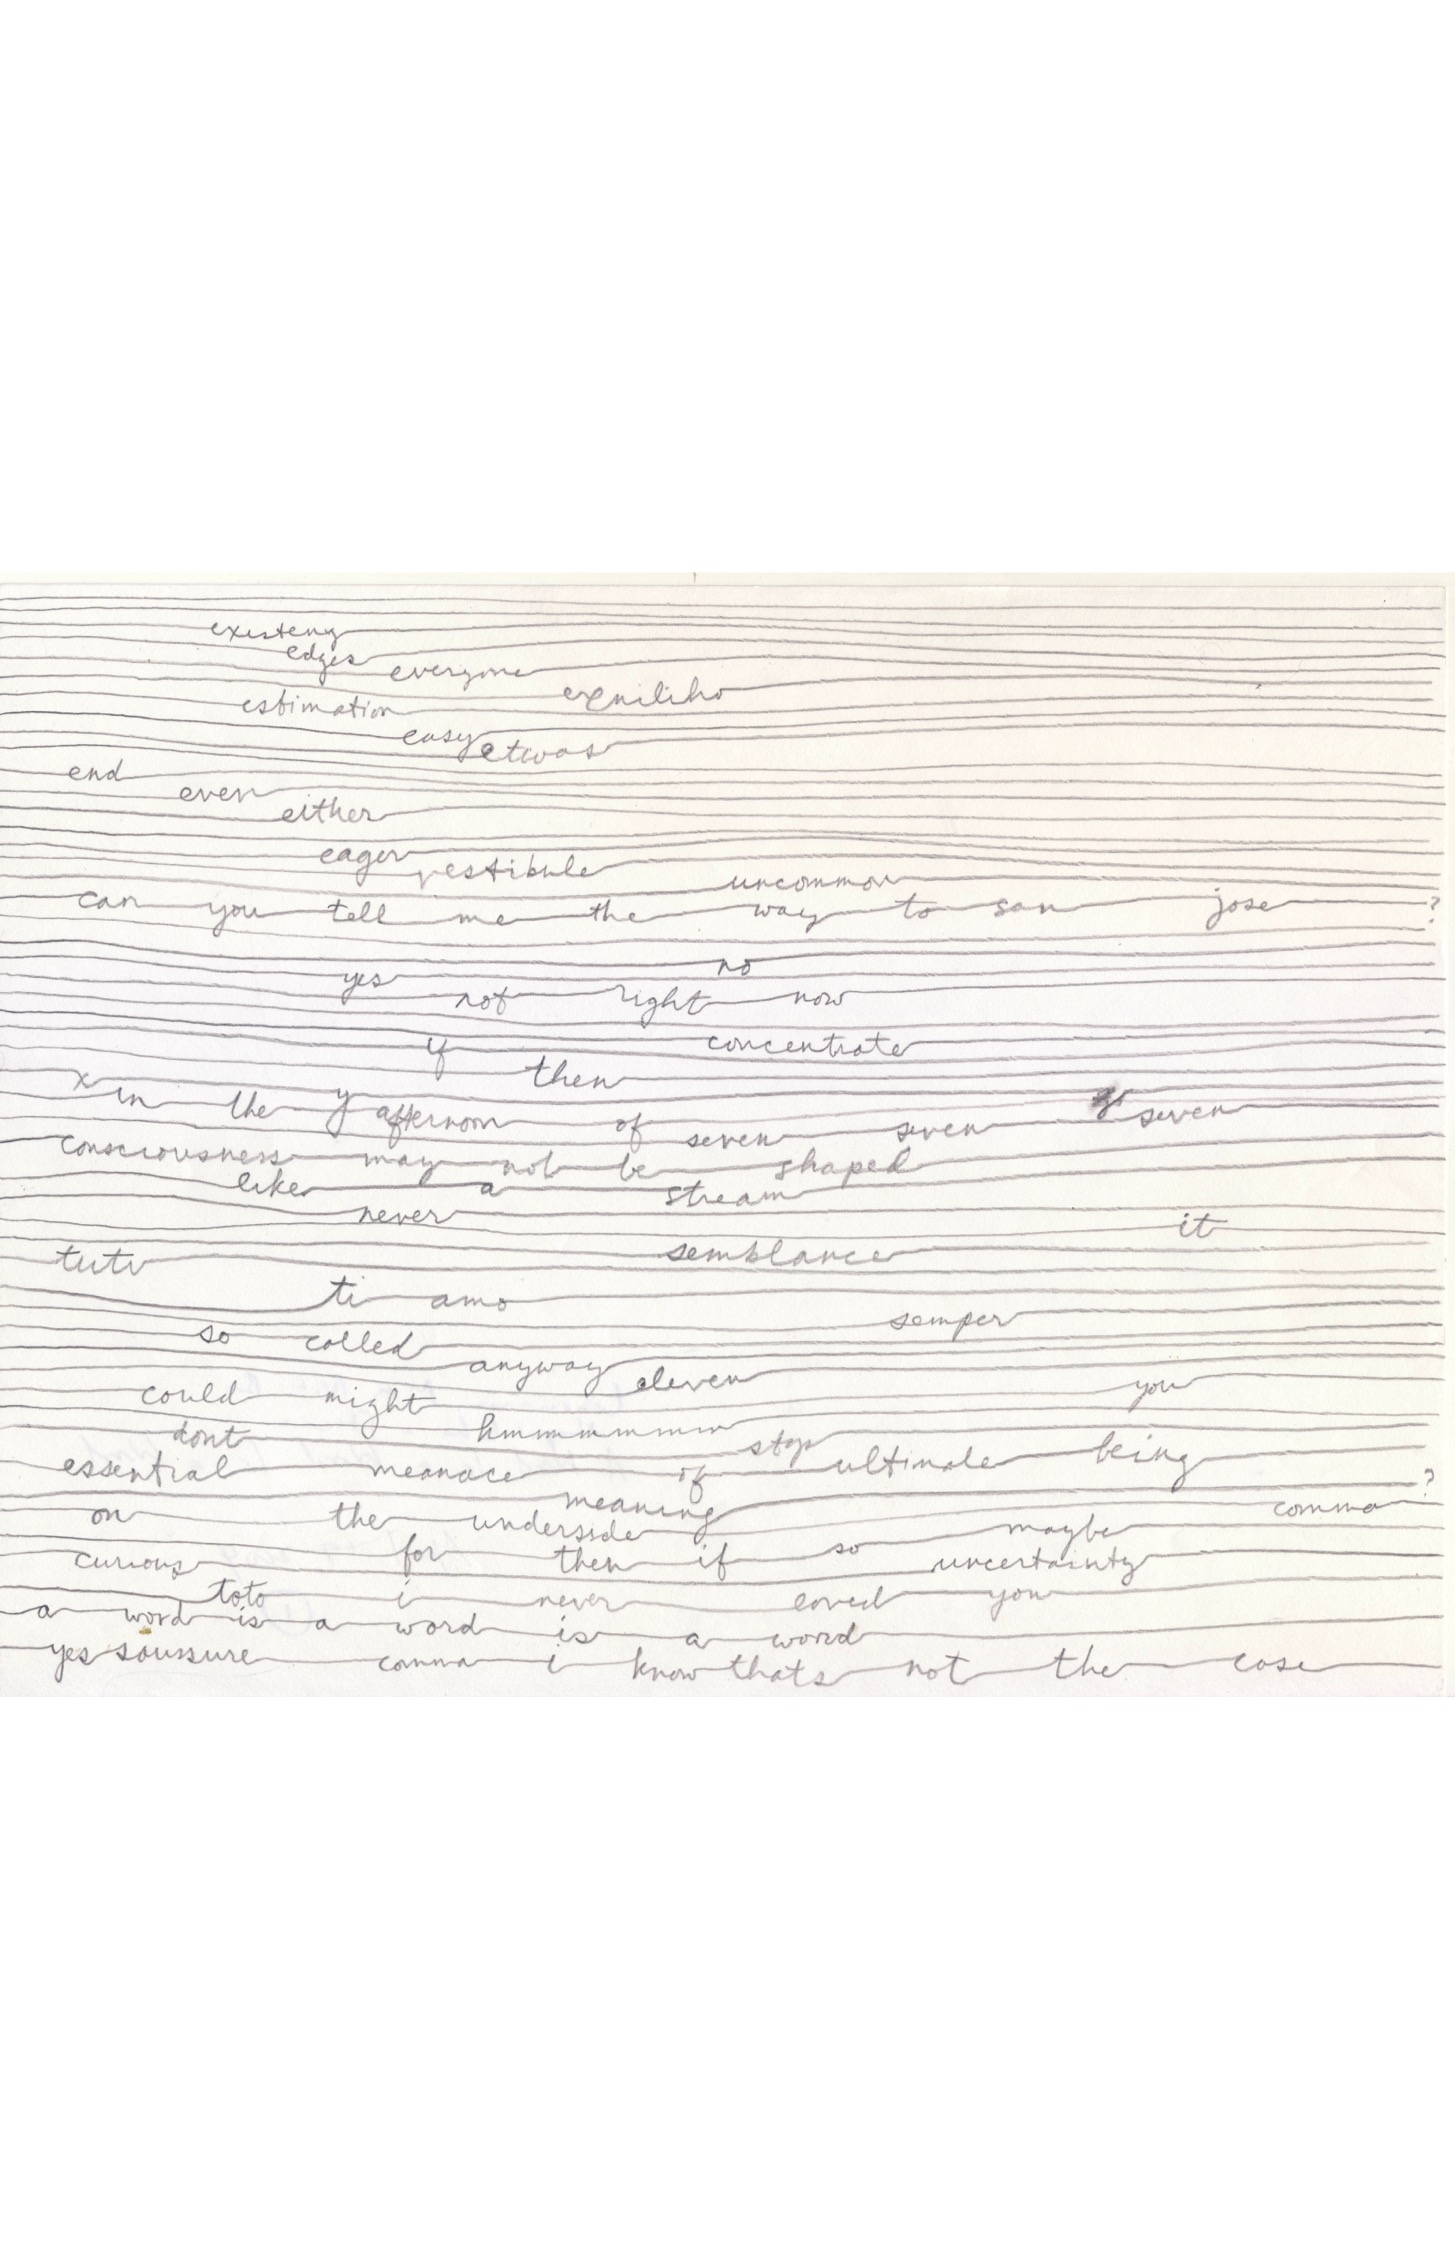 edges
everyone
estimation
easy etwas
end
even
either
eager
vestibule
uncommon
can you tell me the way to san jose ?
no
yes
not right now
if concentrate
then
x y
in the afternoon of seven seven seven
consciousness may not be shaped
like a stream
never
it
semblance
ti amo
semper
so called
anyway eleven
could might you
dont hmmmmmmm
stop
essential meanace of ultimate being
meaning ?
on the underside maybe comma
curious for then if so uncertainty
toto i never loved you
a word is a word is a word
yes soussure comma i know thats not the case